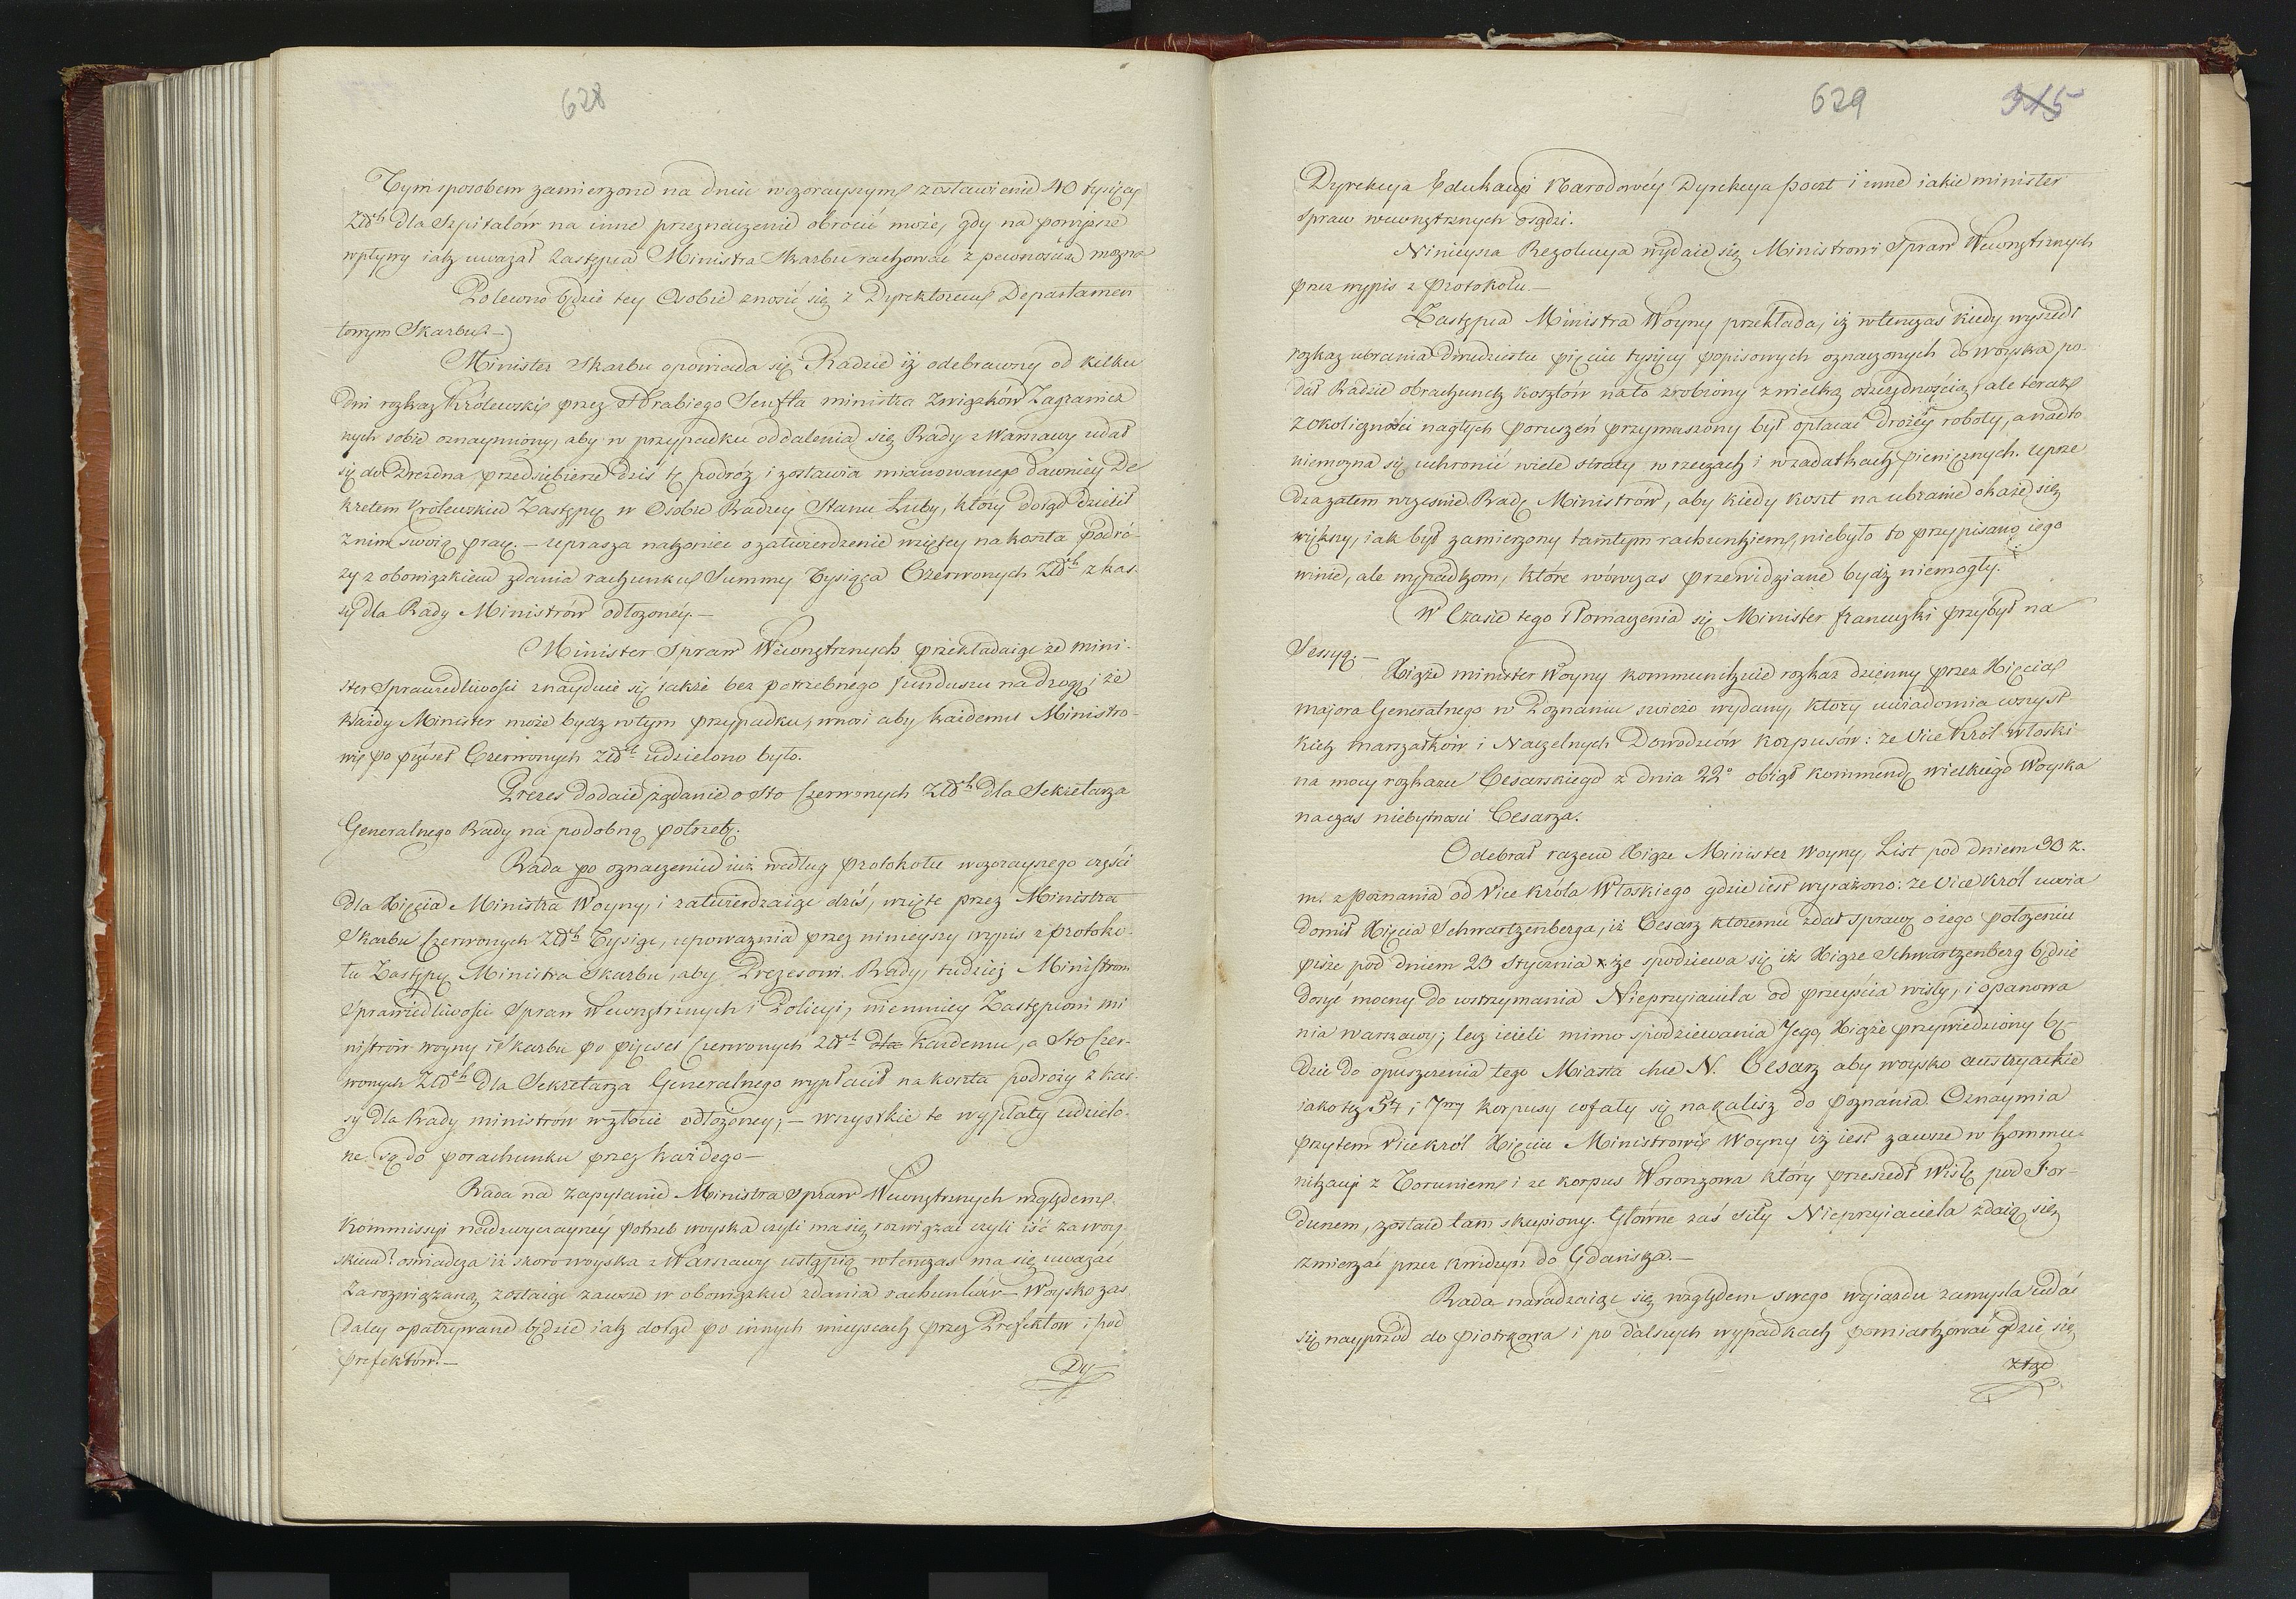 628
Tym sposobem zamierzone na dniu wczorayszym zostawienie 40 tysięcy
Złłch dla Szpitalów na inne przeznaczenie obrócić może, gdy na powyższe
wpływy iak uważał Zastępca Ministra Skarbu rachować z pewnością można
Polecono będzie tey Osobie znosić się z Dyrektorem Departamen
towym Skarbu.—
Minister Skarbu opowiada się Radzie iż odebrawszy od kilku
dni rozkaz Królewski przez Hrabiego Senfta ministra Związków Zagranicz
nych sobie oznaymiony, aby w przypadku oddalenia się Rady z Warszawy udał
się do Drezna, przedsiębierze dziś tę podróż i zostawia mianowanego dawniey De
kretem Królewskim Zastępcę w Osobie Radzcy Stanu Łuby, który dotąd dzielił
z nim swoią pracę.— uprasza nakoniec o zatwierdzenie wziętey na koszta podró-
ży z obowiązkiem zdania rachunku Summy Tysiąca Czerwonych Złłch z kas-
sy dla Rady Ministrów odłożoney.—
Minister Spraw Wewnętrznych przekładaiąc że mini-
ster Sprawiedliwości znayduie się także bez potrzebnego funduszu na drogę, i że
każdy Minister może bydz w tym przypadku, wnosi aby każdemu Ministro-
wi po pięćset Czerwonych Złłch udzielono było.
Prezes dodaie żądanie o Sto Czerwonych Złłch dla Sekretarza
Generalnego Rady na podobną potrzebę.
Rada po oznaczeniu iuż według protokołu wczorayszego części
dla Xięcia Ministra Woyny, i zatwierdzaiąc dziś, wzięte przez Ministra
Skarbu Czerwonych Złłch Tysiąc, upoważnia przez ninieyszy wypis z protoko-
łu Zastępcę Ministra Skarbu, aby Prezesowi Rady, tudzież Ministrom
Sprawiedliwości Spraw Wewnętrznych i Policyi, niemniey Zastępcom Mi
nistrów Woyny i Skarbu po pięćset Czerwonych Złłch dla każdemu, a Sto Czer-
wonych Złłch dla Sekretarza Generalnego wypłacił na koszta podróży z kas-
sy dla Rady ministrów w złocie odłożoney;— wszystkie te wypłaty udzielo-
ne są do porachunku przez każdego—
Rada na zapytanie Ministra Spraw Wewnętrznych względem
Kommissyi nadzwyczayney potrzeb woyska czyli ma się rozwiązać czyli iść za woy-
skiem? oświadcza iż skoro woyska z Warszawy ustąpią wtenczas ma się uważać
Za rozwiązaną, zostaiąc zawsze w obowiązku zdania rachunków— Woysko zaś
daley opatrywane będzie iak dotąd po innych mieyscach przez Prefektów i pod
prefektów.—
Dy-
629
315
Dyrekcya Edukacyi Narodowéy Dyrekcya poczt i inne iakie minister
Spraw wewnętrznych osądzi.
Ninieysza Rezolucya wydaie się Ministrowi Spraw Wewnętrznych
przez wypis z Protokołu.—
Zastępca Ministra Woyny przekłada, iż wtenczas kiedy wyszedł
rozkaz ubrania dwudziestu pięciu tysięcy popisowych oznaczonych do woyska po-
dał Radzie obrachunek kosztów na to zrobiony z wielką oszczędnością, ale teraz
z okoliczności nagłych poruszeń przymuszony był opłacać drożéy roboty, a nadto
niemożna się uchronić wiele straty w rzeczach i w zadatkach pieniężnych. Uprze
dza zatem wcześnie Radę Ministrów, aby kiedy koszt na ubranie okaże się
większy, iak był zamierzony tamtym rachunkiem, niebyło to przypisano iego
winie, ale wypadkom, które wówczas przewidziane bydź niemogły.
W Czasie tego tłomaczenia się Minister francuzki przybył na
Sessyą.—
Xiąże minister Woyny kommunikuie rozkaz dzienny przez Xięcia
majora Generalnego w Poznaniu świeżo wydany, który uwiadomia wszyst
kich marszałków i Naczelnych Dowodców korpusów: że Vice Król włoski
na mocy rozkazu Cesarskiego z dnia 22o obiął kommendę wielkiego Woyska
na czas niebytności Cesarza.
Odebrał razem Xiąże Minister Woyny, List pod dniem 30 z.
m. z Poznania od Vice króla Włoskiego gdzie iest wyrażono: że Vice król uwia
domił Xięcia Schwartzenberga, iż Cesarz któremu zdał sprawę o iego położeniu
pisze pod dniem 23 Stycznia że spodziewa się iż Xiąże Schwartzenberg będzie
dosyć mocny do wstrzymania Nieprzyiaciela od przeyścia wisły, i opanowa
nia warszawy; lecz ieżeli mimo spodziewania Jego, Xiąże przywiedziony bę-
dzie do opuszczenia tego Miasta chce N. Cesarz aby woysko austryackie
iako też 5ty i 7my korpusy cofały się na Kalisz do poznania. Oznaymia
przytem Vicekról Xięciu Ministrowi Woyny iż iest zawsze w kommu-
nikacyi z Toruniem i że korpus Woronzowa który przeszedł Wisłę pod For-
dunem, zostaie tam skupiony. Główne zaś siły Nieprzyiaciela zdaią się
zmierzać przez kwidzyń do Gdańska.—
Rada naradzaiąc się względem swego wyiazdu zamyśla udać
się nayprzód do Piotrkowa i po dalszych wypadkach pomiarkować gdzie się
ztąd